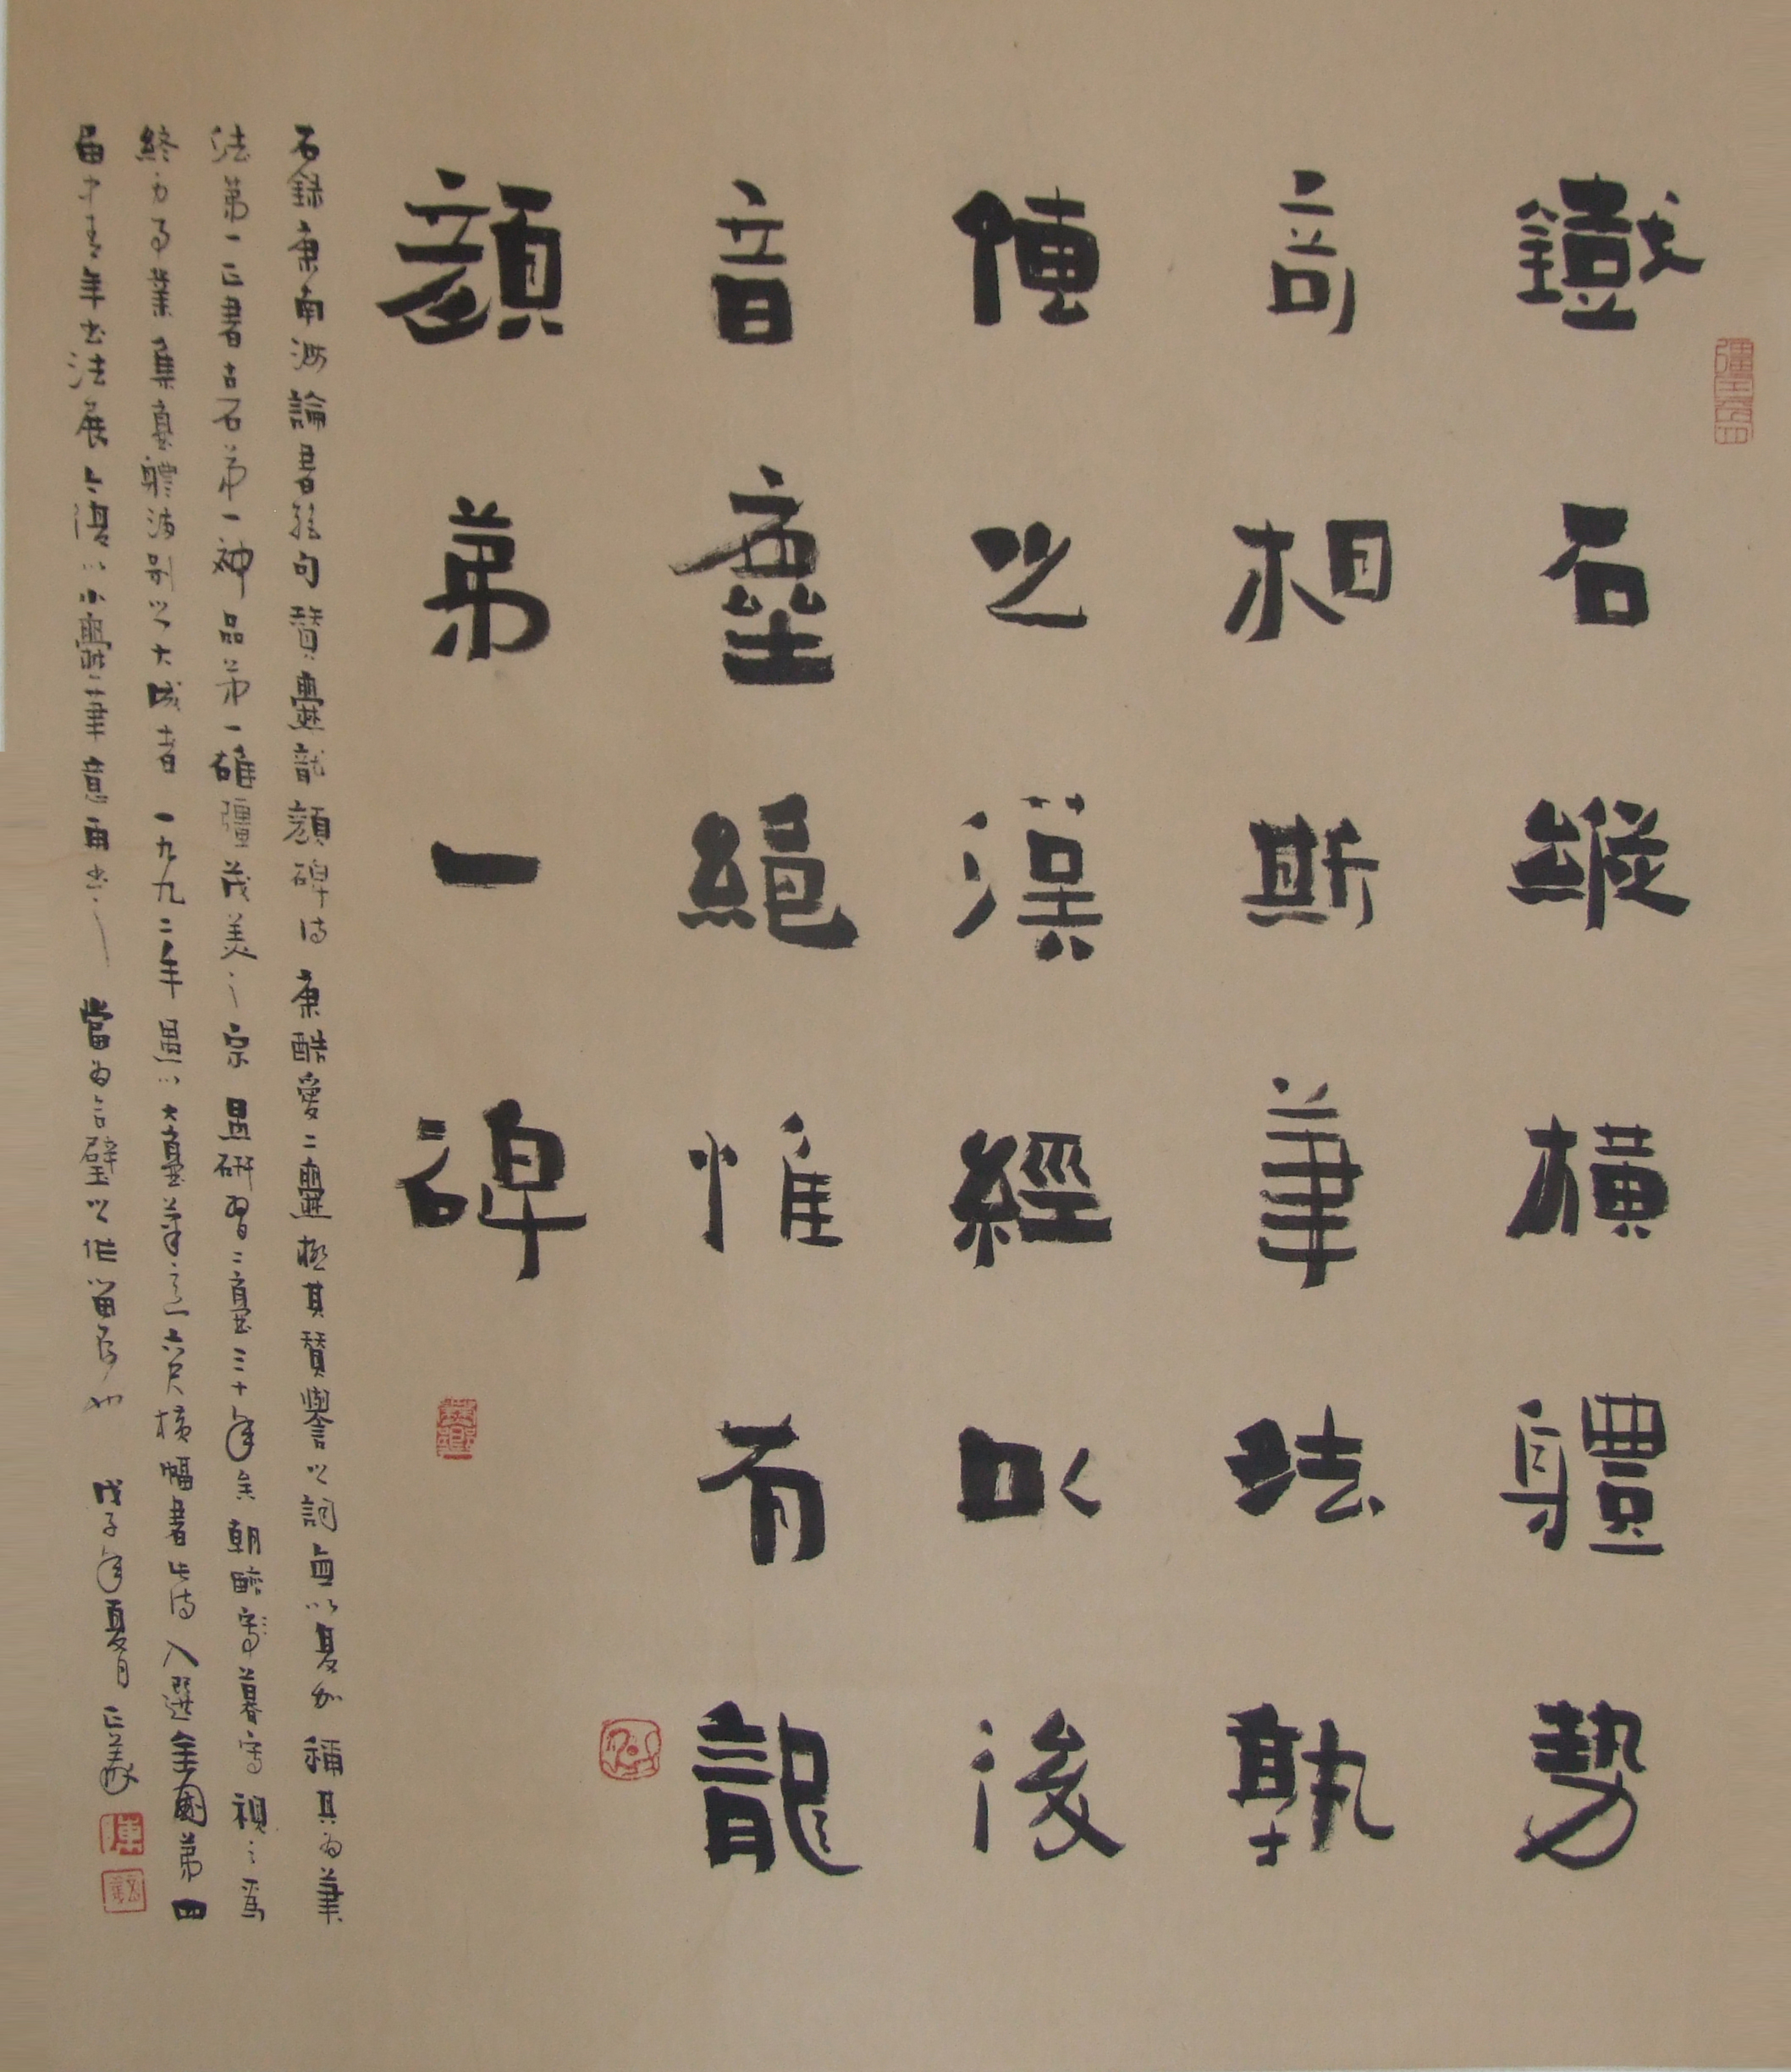 鐵石縱橫體勢
奇相斯筆法孰
傳之漢經以後
音塵絕惟有龍
顏第一碑
右錄康南海論書絕句贊爨龍顏碑詩康酷愛二爨極其贊譽以詞無以复加稱其為筆
法第一正書古石第一神品第一雄彊茂美之宗愚研習二爨三十年矣朝臨暮寫視之為
終身事業集爨體沙別以大成者一九九二年愚以大爨筆意六尺橫幅書此詩入選全國第四
屆中青年書法展今復以小爨筆意再書之當為合璧以作留念也戊子年夏月正義